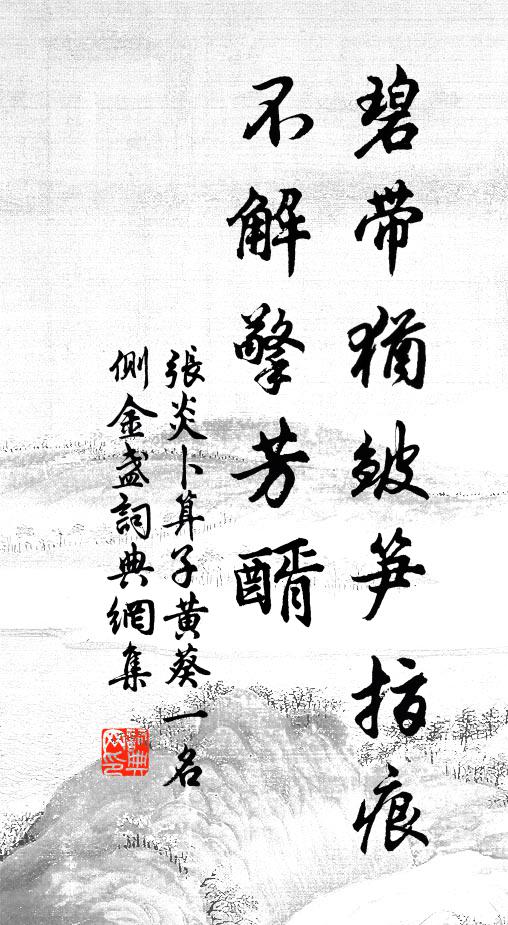 碧帶猶皴笋指痕
不解擎芳醑
張炎卜算子黃葵一名
側金盞詞典網集